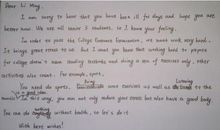 Dear Li Ming,
I am sorry to hear that you have been ill for days and hope you are
better now. We are all senior 3 students, so I know your feeling.
In order to the College Entrance Examination, we must work very hard.
It brings great stress to us. But I want you know that working hard to prepare
for college doesn't mean reading textbooks and doing a sea of exercises only, other
activities also count. For example, sport.
You need do sports, bring some exercises as well as listening to the
music. In this way, you can not only reduce your stress but also have a good body.
You can do nothing without health, so let's do it.
With best wishes!